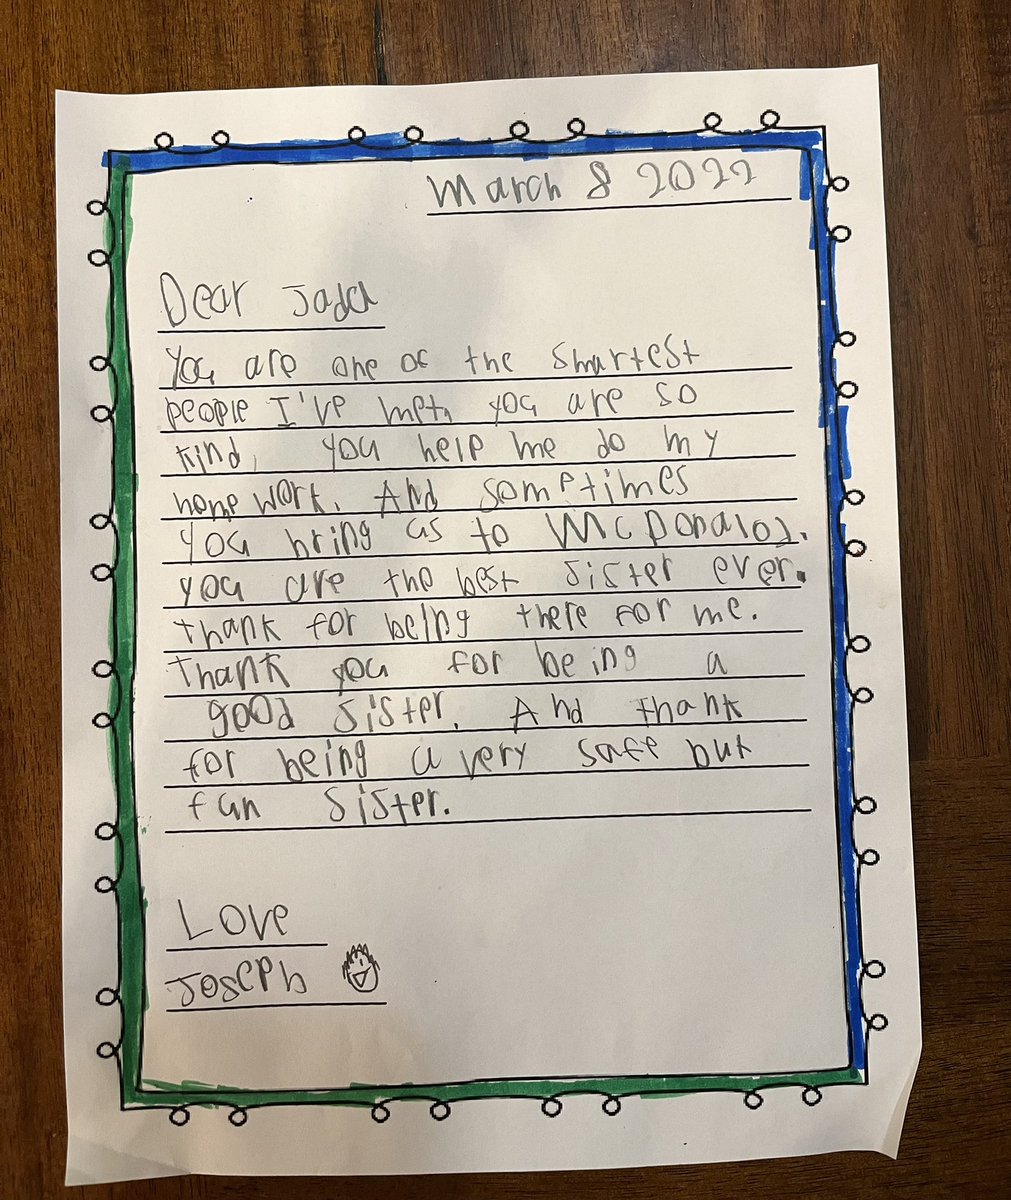 March 8 2022
Dear Jada
You are one of the smartest
people I've met, you are so
kind, you help me do my
home work. And sometimes
you bring us to McDonalds.
you are the best sister ever.
thank for being there for me.
thank you for being a
good sister. And thank
for being a very safe but
fun sister.
Love
Joseph